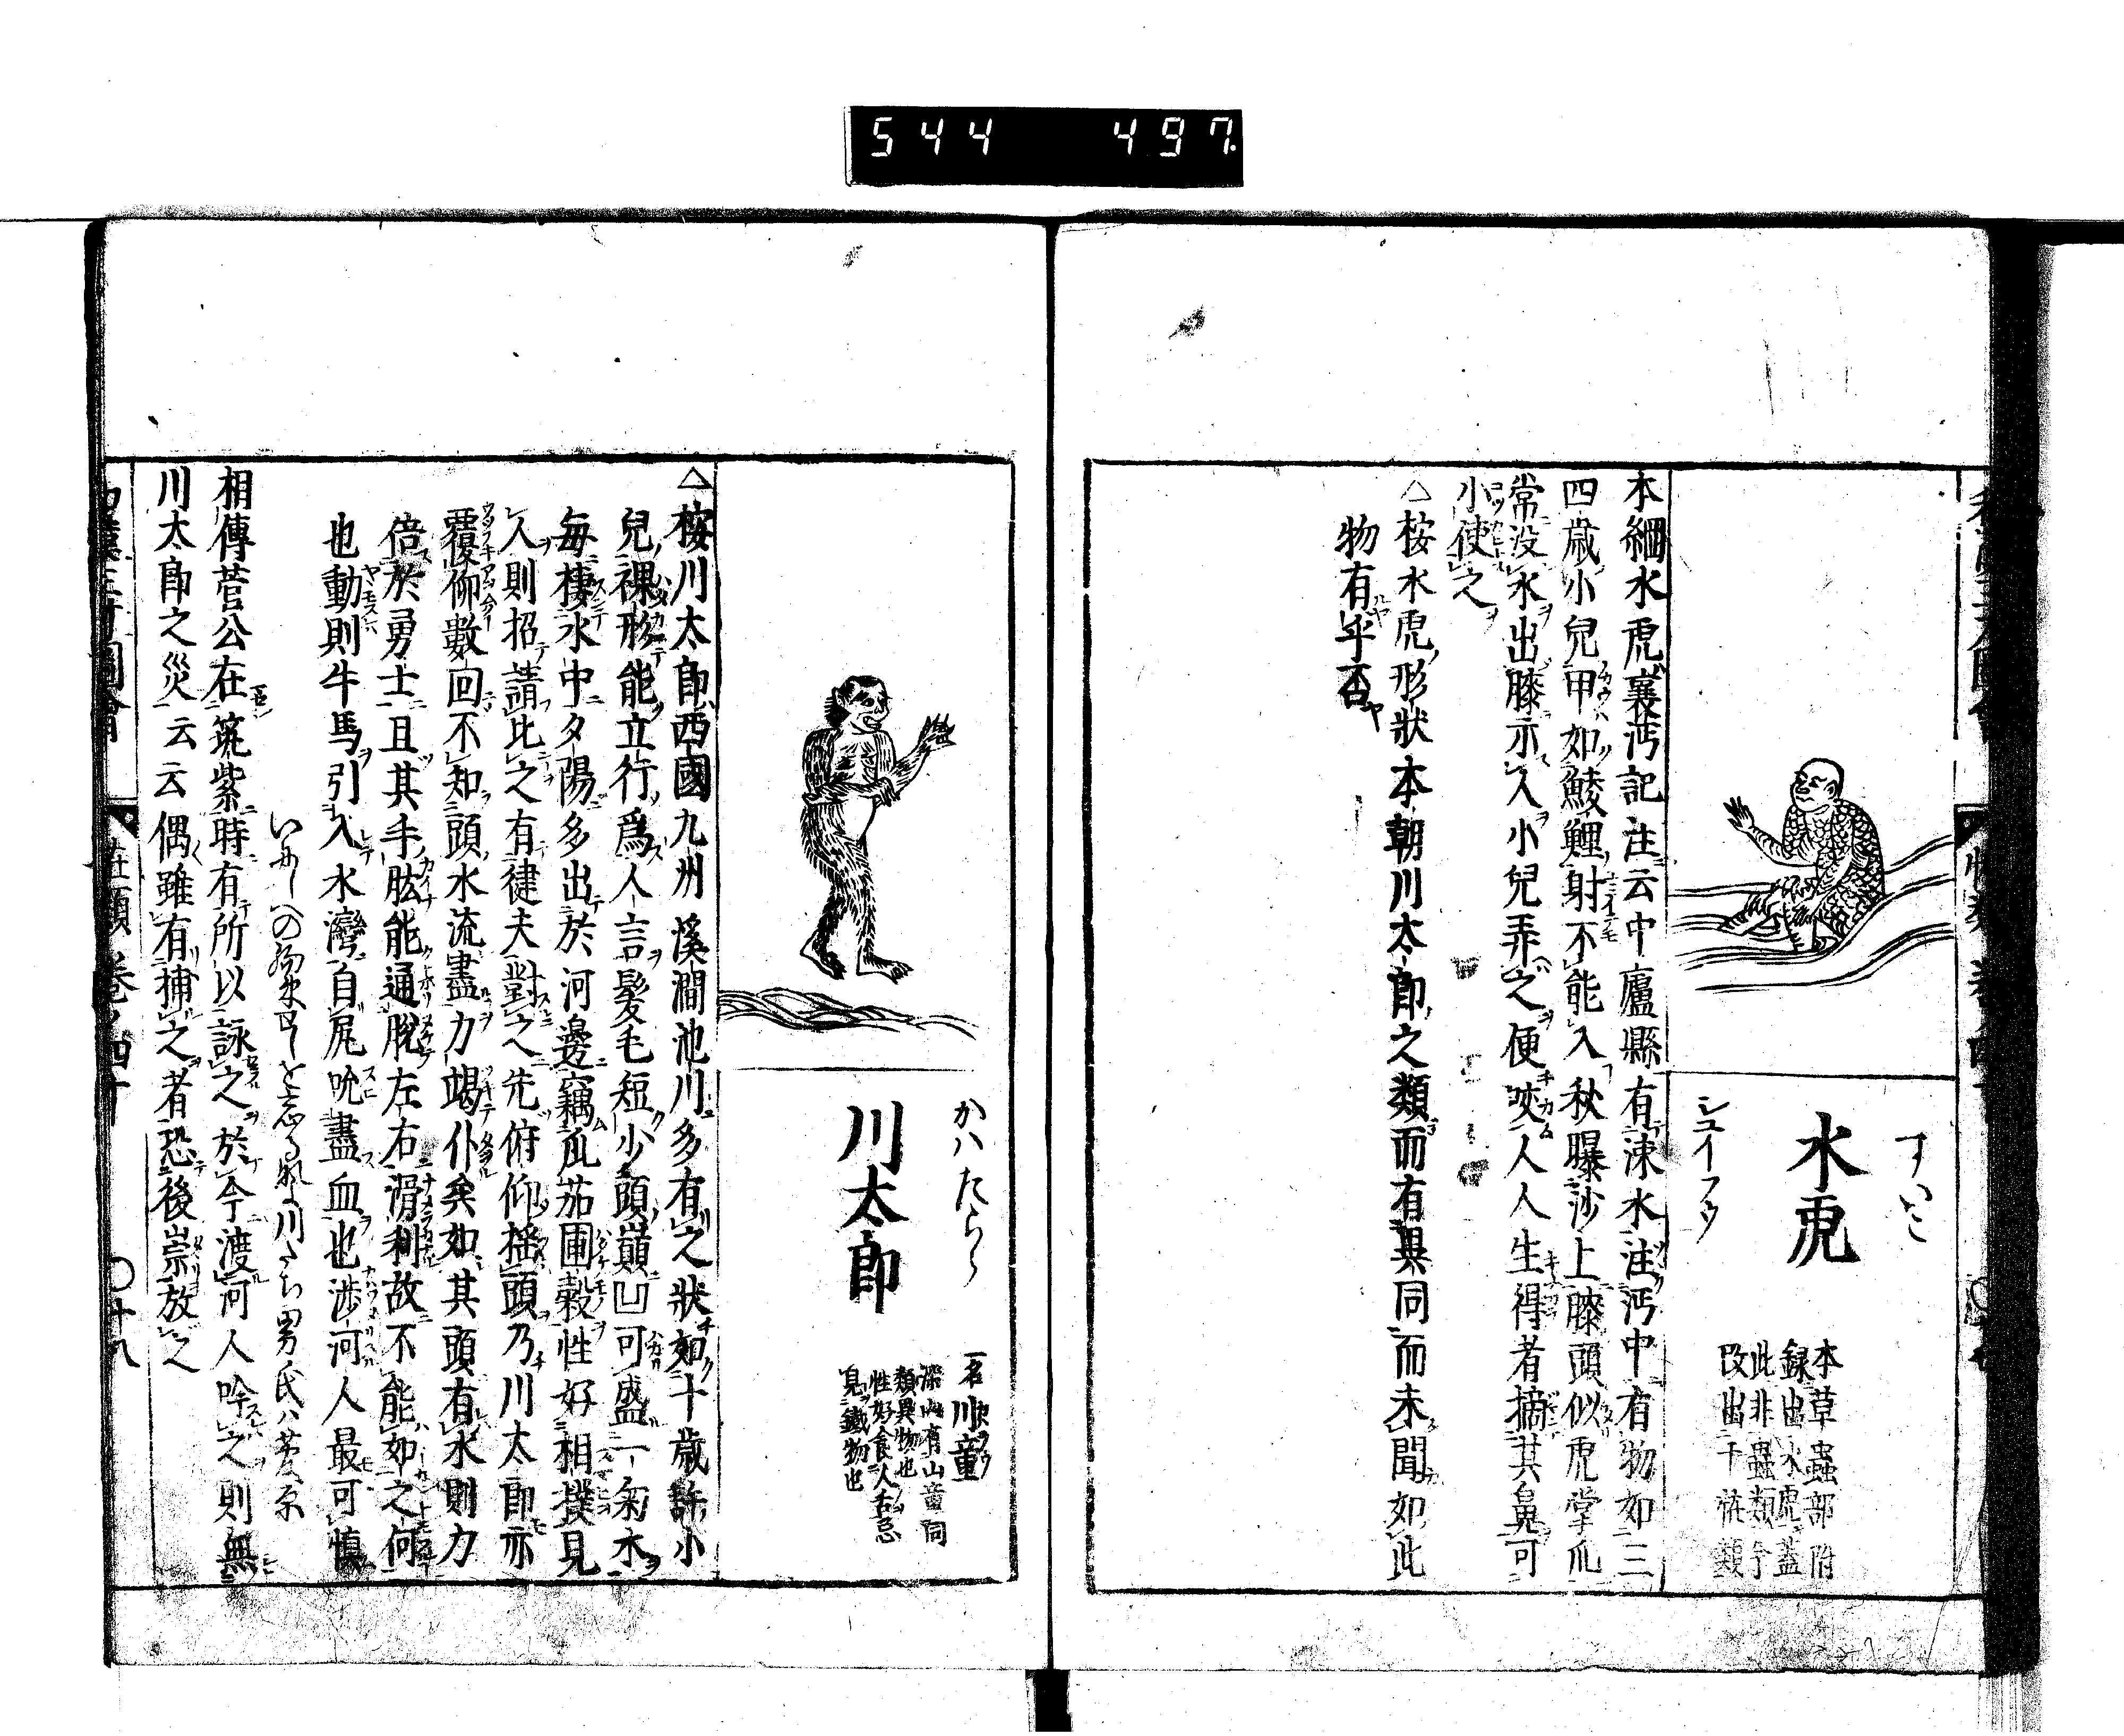 544 497.
水虎
すいこ
シユイフウ
本草蟲部附
録出水虎蓋
此非蟲類今
改出于恠類
本綱水虎襄沔記注云中廬縣有涑水注沔中有物如三
四歳小兒甲如鯪鯉射不能入秋曝沙上膝頭似虎掌爪
常没水出膝示人小兒弄之便咬人人生得者摘其鼻可
小使之
△桉水虎形狀本朝川太郎之類而有異同而未聞如此
物有乎否
川太郎
かハたらう
一名川童
深山有山童同
類異物也
性好食人舌忌
見鐵物也
△桉川太郎西國九州溪澗池川多有之狀如十歳許小
兒裸形能立行爲人言髮毛短少頭巓凹可盛一匊水
毎棲水中夕陽多出於河邊竊瓜茄圃穀性好相撲見
人則招請比之有健夫對之先俯仰揺頭乃川太郎亦
覆仰數回不知頭水流盡力竭仆矣如其頭有水則力
倍於勇士且其手肱能通脱左右滑利故不能如之何
也動則牛馬引入水灣自尻吮盡血也渉河人最可愼
いにしへの約束せしを忘るなよ川たち男氏ハ菅原
相傳菅公在筑紫時有所以詠之於今渡河人吟之則無
川太郎之災云云偶雖有捕之者恐後崇放之
和漢三才圖會 恠類 卷ノ四十 〇十八